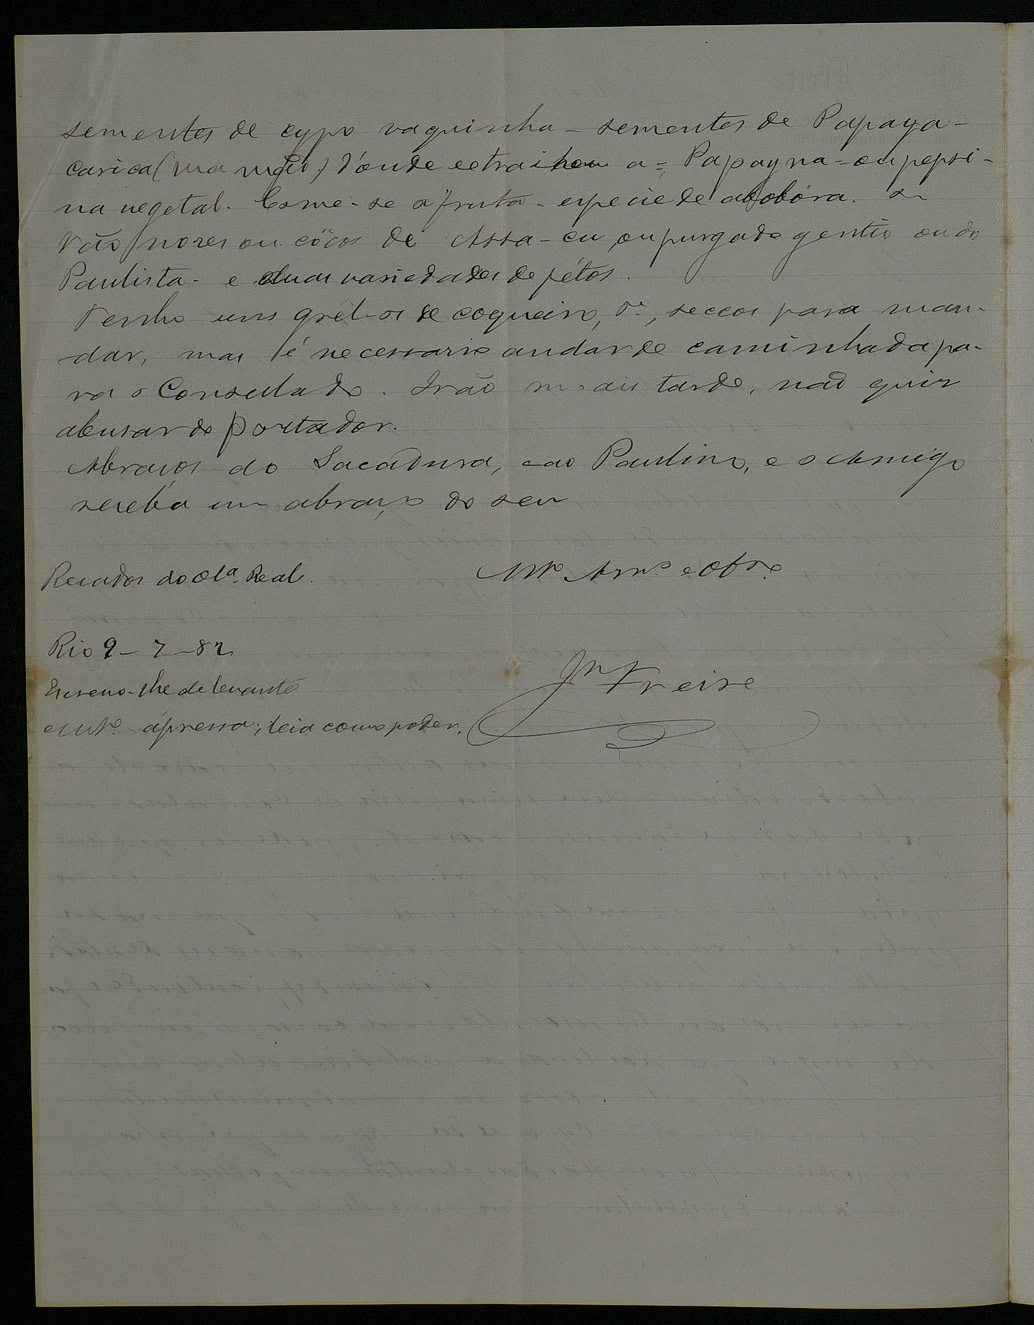 sementes de cypo vaquinha - sementes de Papaya -
carica (mamão) d'onde extrai a =, Papayna - ou pepsi-
na vegetal. Come-se a fruta - especie de abobora.
Vão nozes ou côcos de Assa-cu, ou purga do gentio ou do
Paulista - e duas variedades de fétos.
Tenho uns grélos de coqueiro, seccos para man-
dar, mas é necessario andar de caminhada pa-
ra o Consulado. Irão mais tarde, não quiz
abusar do portador.
Abraços do Sacadura, e ao Paulino, e o Amigo
receba um abraço do seu
Recados do Real.
Mto Amo e Obro
Rio 9 - 7 - 82
Escrevo-lhe de levante
e mto ápressa; leia como poder.
Jn Freire